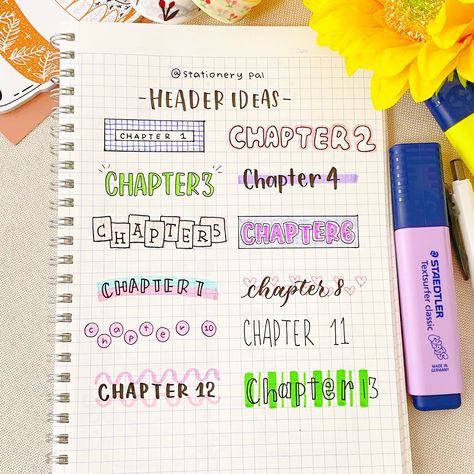 @stationery pal
-HEADER IDEAS-
CHAPTER 1
CHAPTER 2
CHAPTER3
Chapter 4
CHAPTER5
CHAPTER6
CHAPTER 7
chapter 8
chapter 10
CHAPTER 11
CHAPTER 12
Chapter 13
STAEDTLER
Textsurfer classic
MADE IN
GERMANY